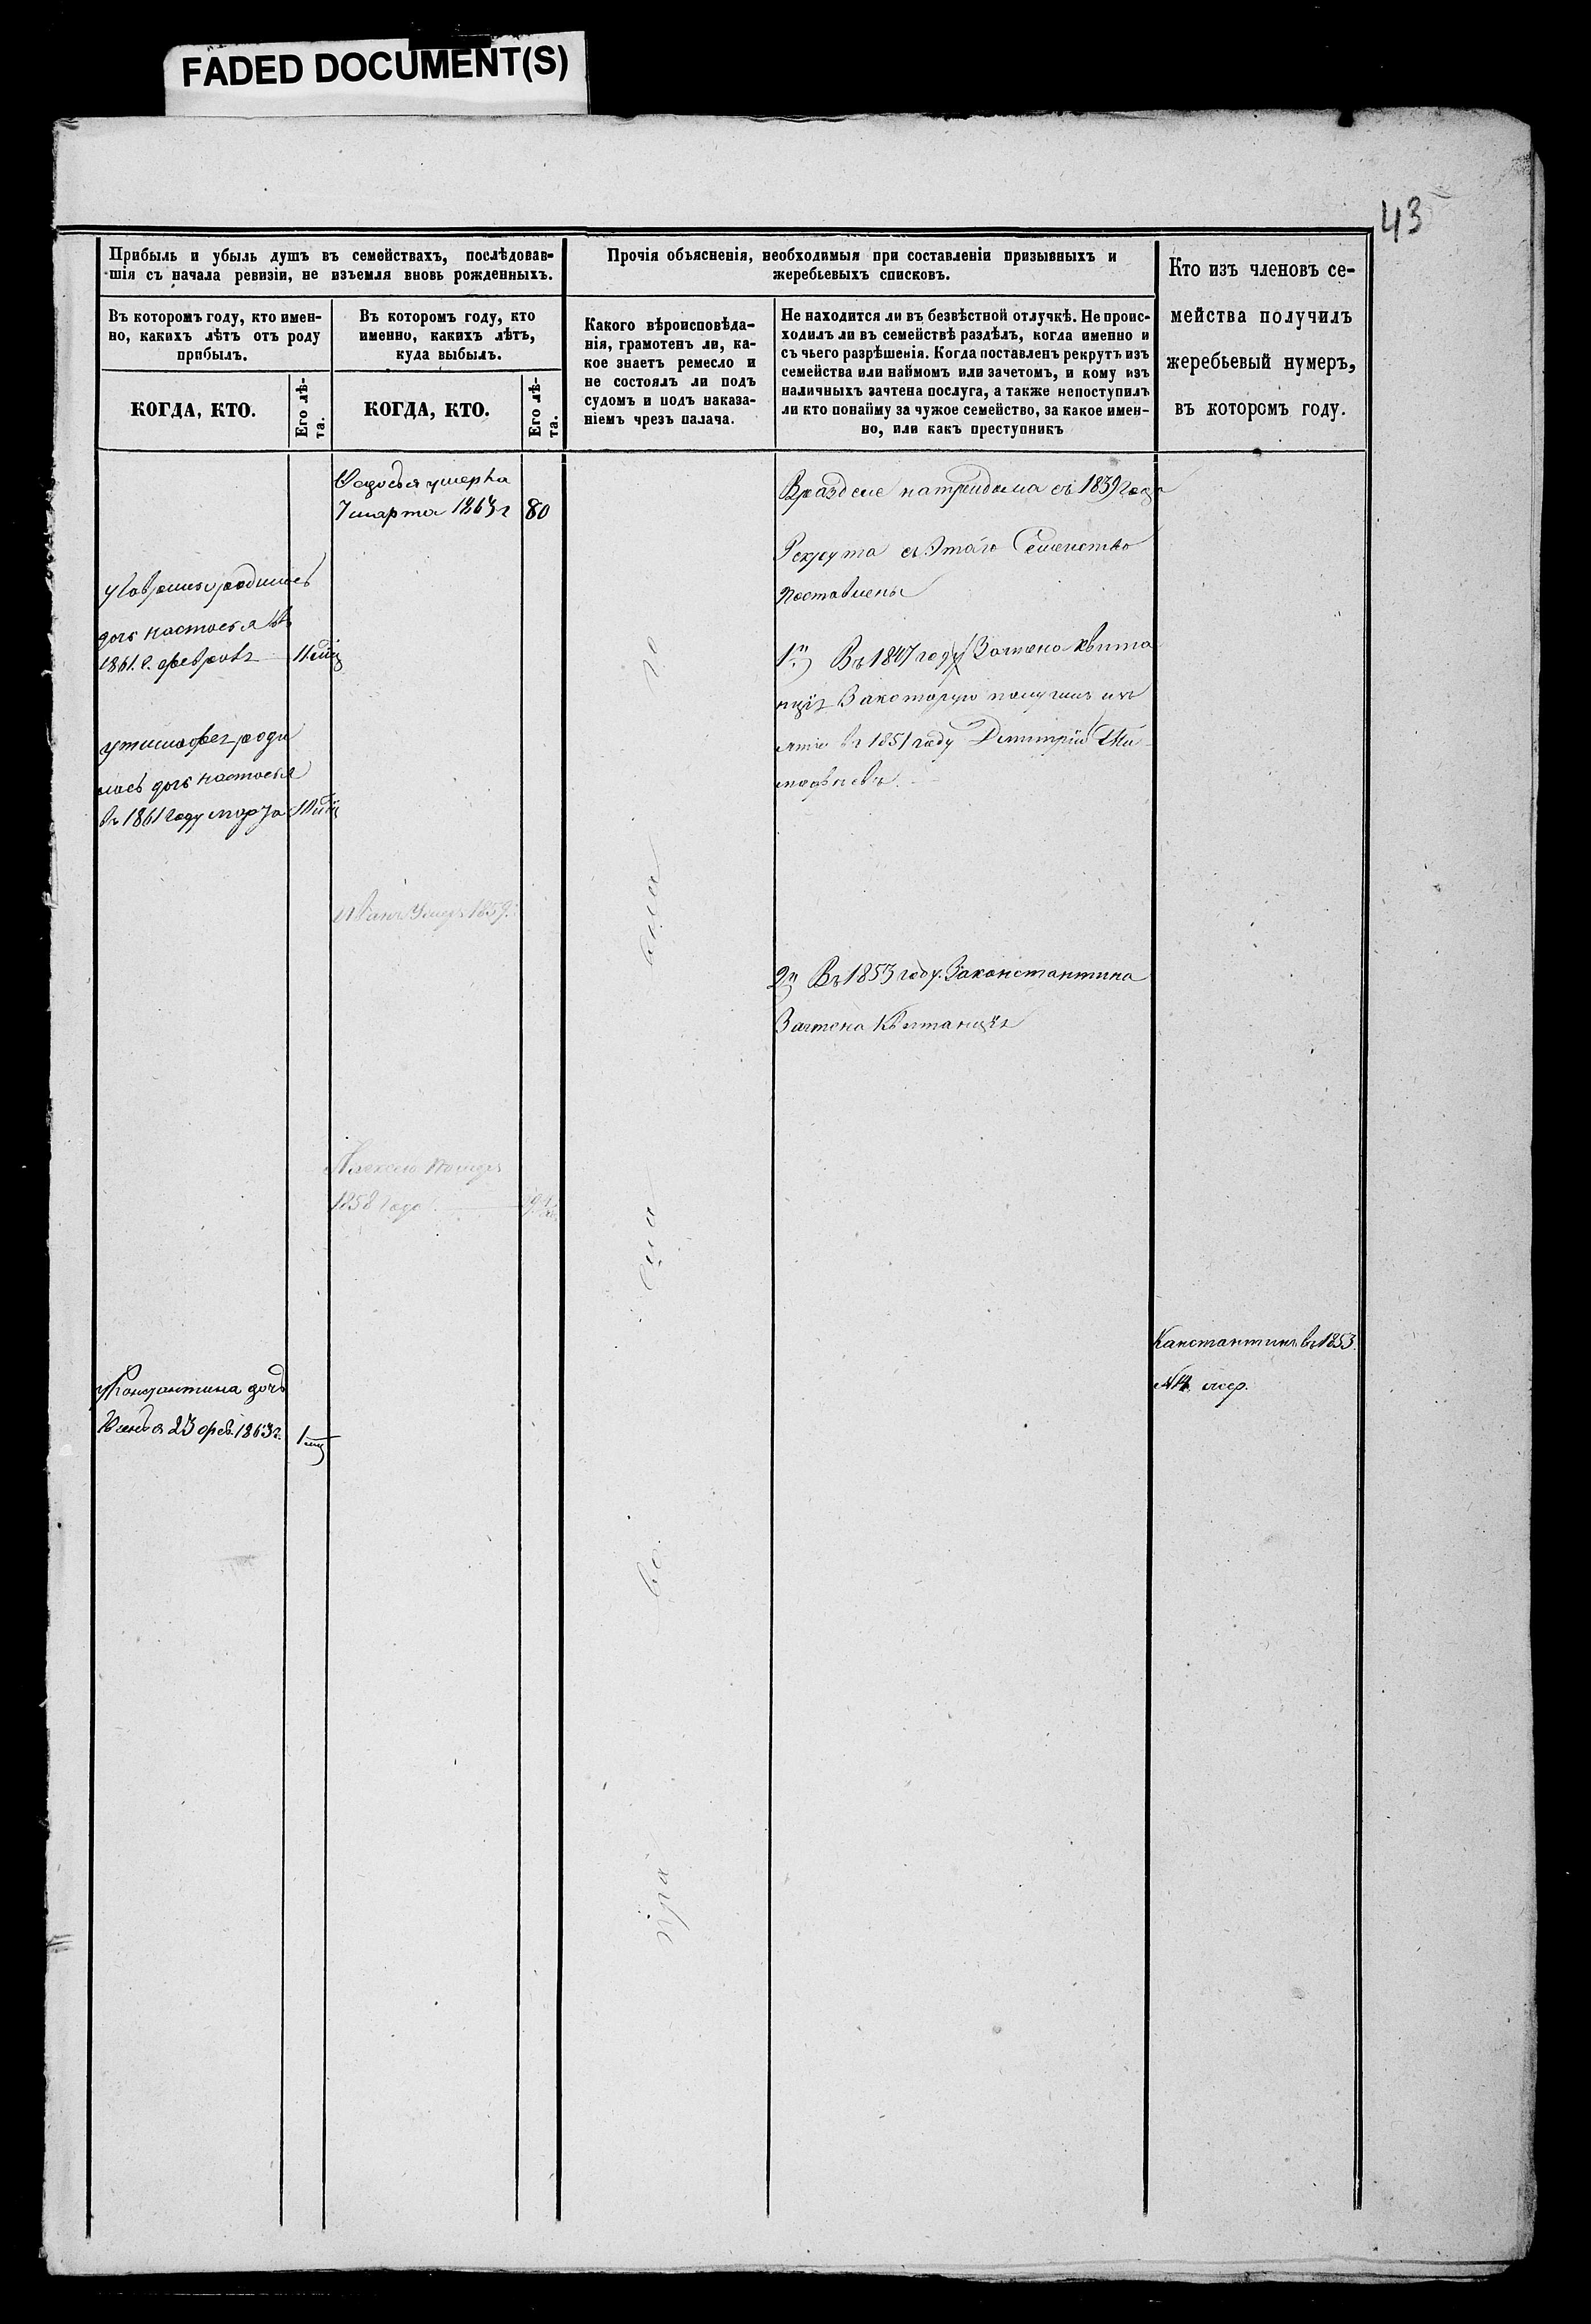 FADED DOCUMENT(S)
43
Прибыль и убыль душъ въ семействахъ, послѣдовав-
шія съ начала ревизіи, не изъемля вновь рожденныхъ.
Прочія объясненія, необходимыя при составленіи призывныхъ и
жеребьевыхъ списковъ.
Кто изъ членовъ се-
мейства получилъ
жеребьевый нумеръ,
въ которомъ году.
Въ которомъ году, кто имен-
но, какихъ лѣтъ отъ роду
прибылъ.
Въ которомъ году, кто
именно, какихъ лѣтъ,
куда выбылъ.
Какого вѣроисповѣда-
нія, грамотенъ ли, ка-
кое знаетъ ремесло и
не состоялъ ли подъ
судомъ и подъ наказа-
ніемъ чрезъ палача.
Не находится ли въ безвѣстной отлучкѣ. Не проис-
ходилъ ли въ семействѣ раздѣлъ, когда именно и
съ чьего разрѣшенія. Когда поставленъ рекрутъ изъ
семейства или наймомъ или зачетомъ, и кому изъ
наличныхъ зачтена послуга, а также непоступилъ
ли кто понайму за чужое семейство, за какое имен-
но, или какъ преступникъ
КОГДА, КТО.
Его лѣ-
та.
КОГДА, КТО.
Его лѣ-
та.
умерла
7 марта 1863 г 80
Вразделе натридома съ 1839 года
Рекрута съ Этаго Семейства
поставлены
дочь настасья
1861. г.
1й Въ 1847 году Зачтена квита
нція Закоторую получилъ
въ 1851 году Дмитрій
роди
лась дочь настасья
въ 1861 году марта
Иванъ Умеръ 1859.
2й Въ 1853 году. Законстантина
Зачтена Квитанція
Алексей померъ
1858 года
Канстантинъ въ 1853.
жер.
Уконстантина дочь
23 фев. 1863 г. 1
го
сла
во
пра